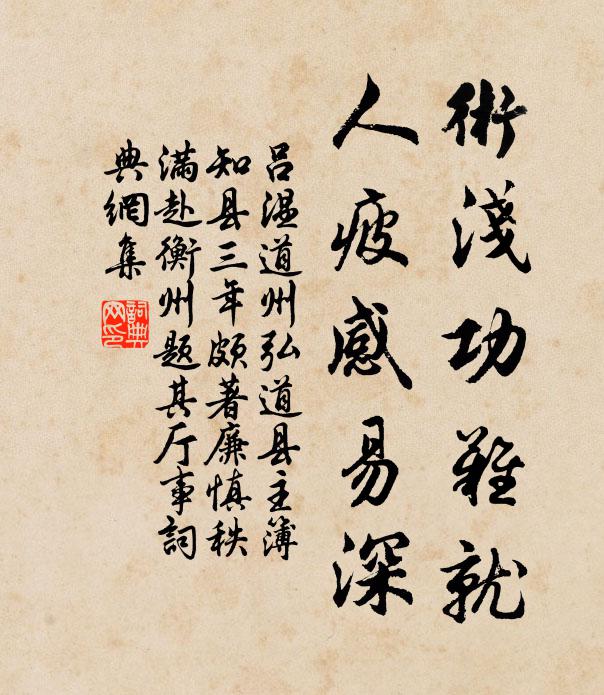 術淺功難就
人疲感易深
呂温道州弘道县主簿
知县三年頗著廉慎秩
滿赴衡州題其厅事詞
典網集
詞典网印